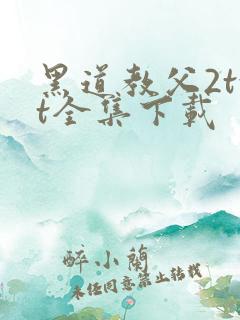 黑道教父2tx
t全集下载
醉小兰
未经同意禁止转载